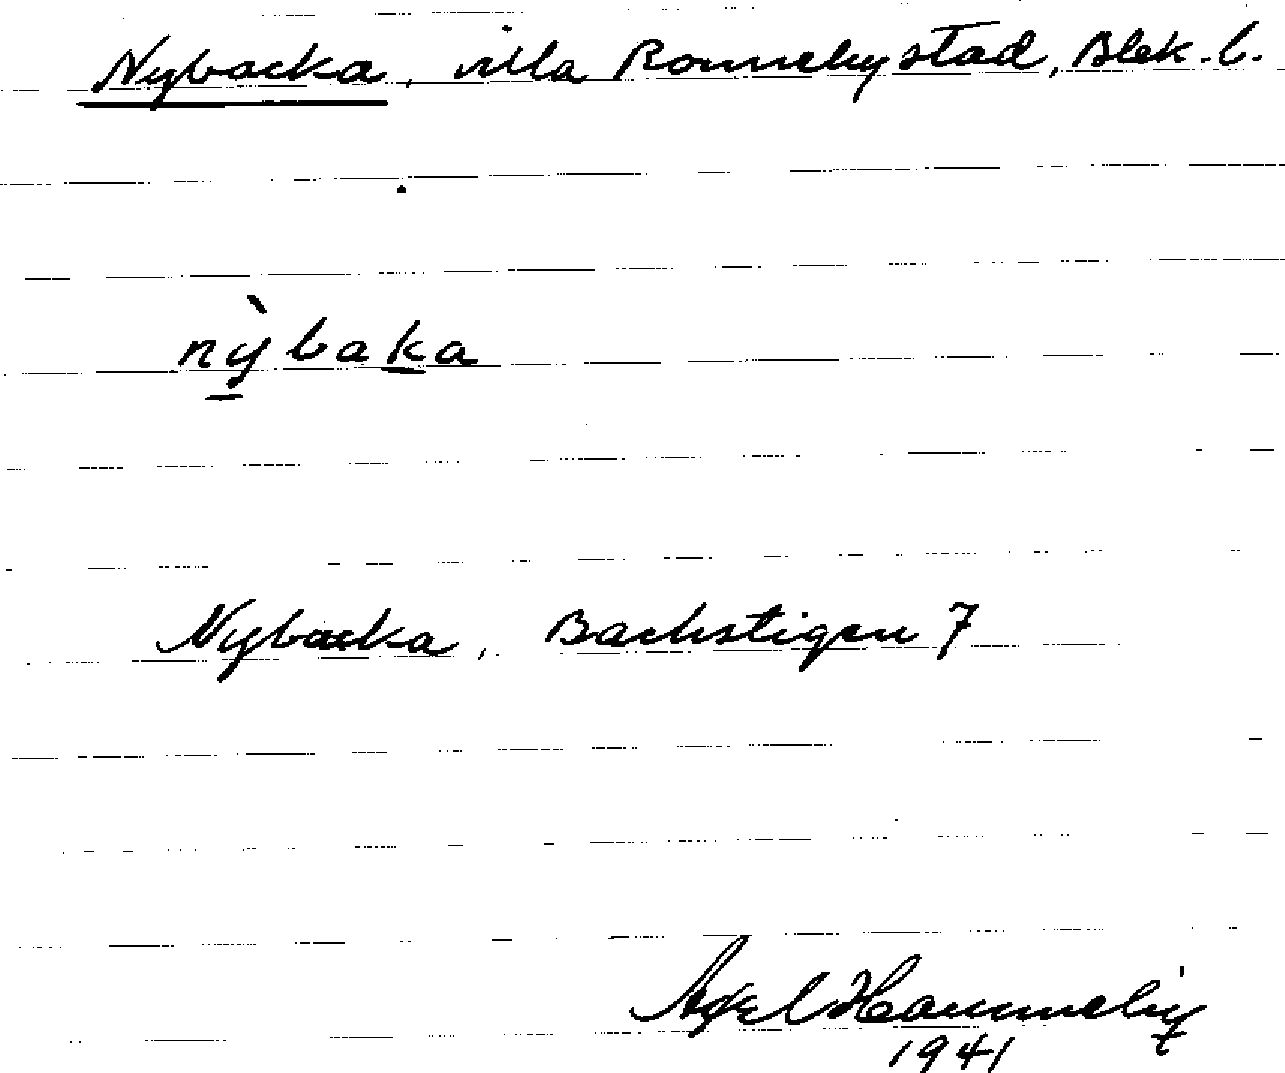 Nybacka, villa Ronneby stad, Blek. l.
nỳbaka
Nybacka, Backstigen 7
Axel Hammelin
1941